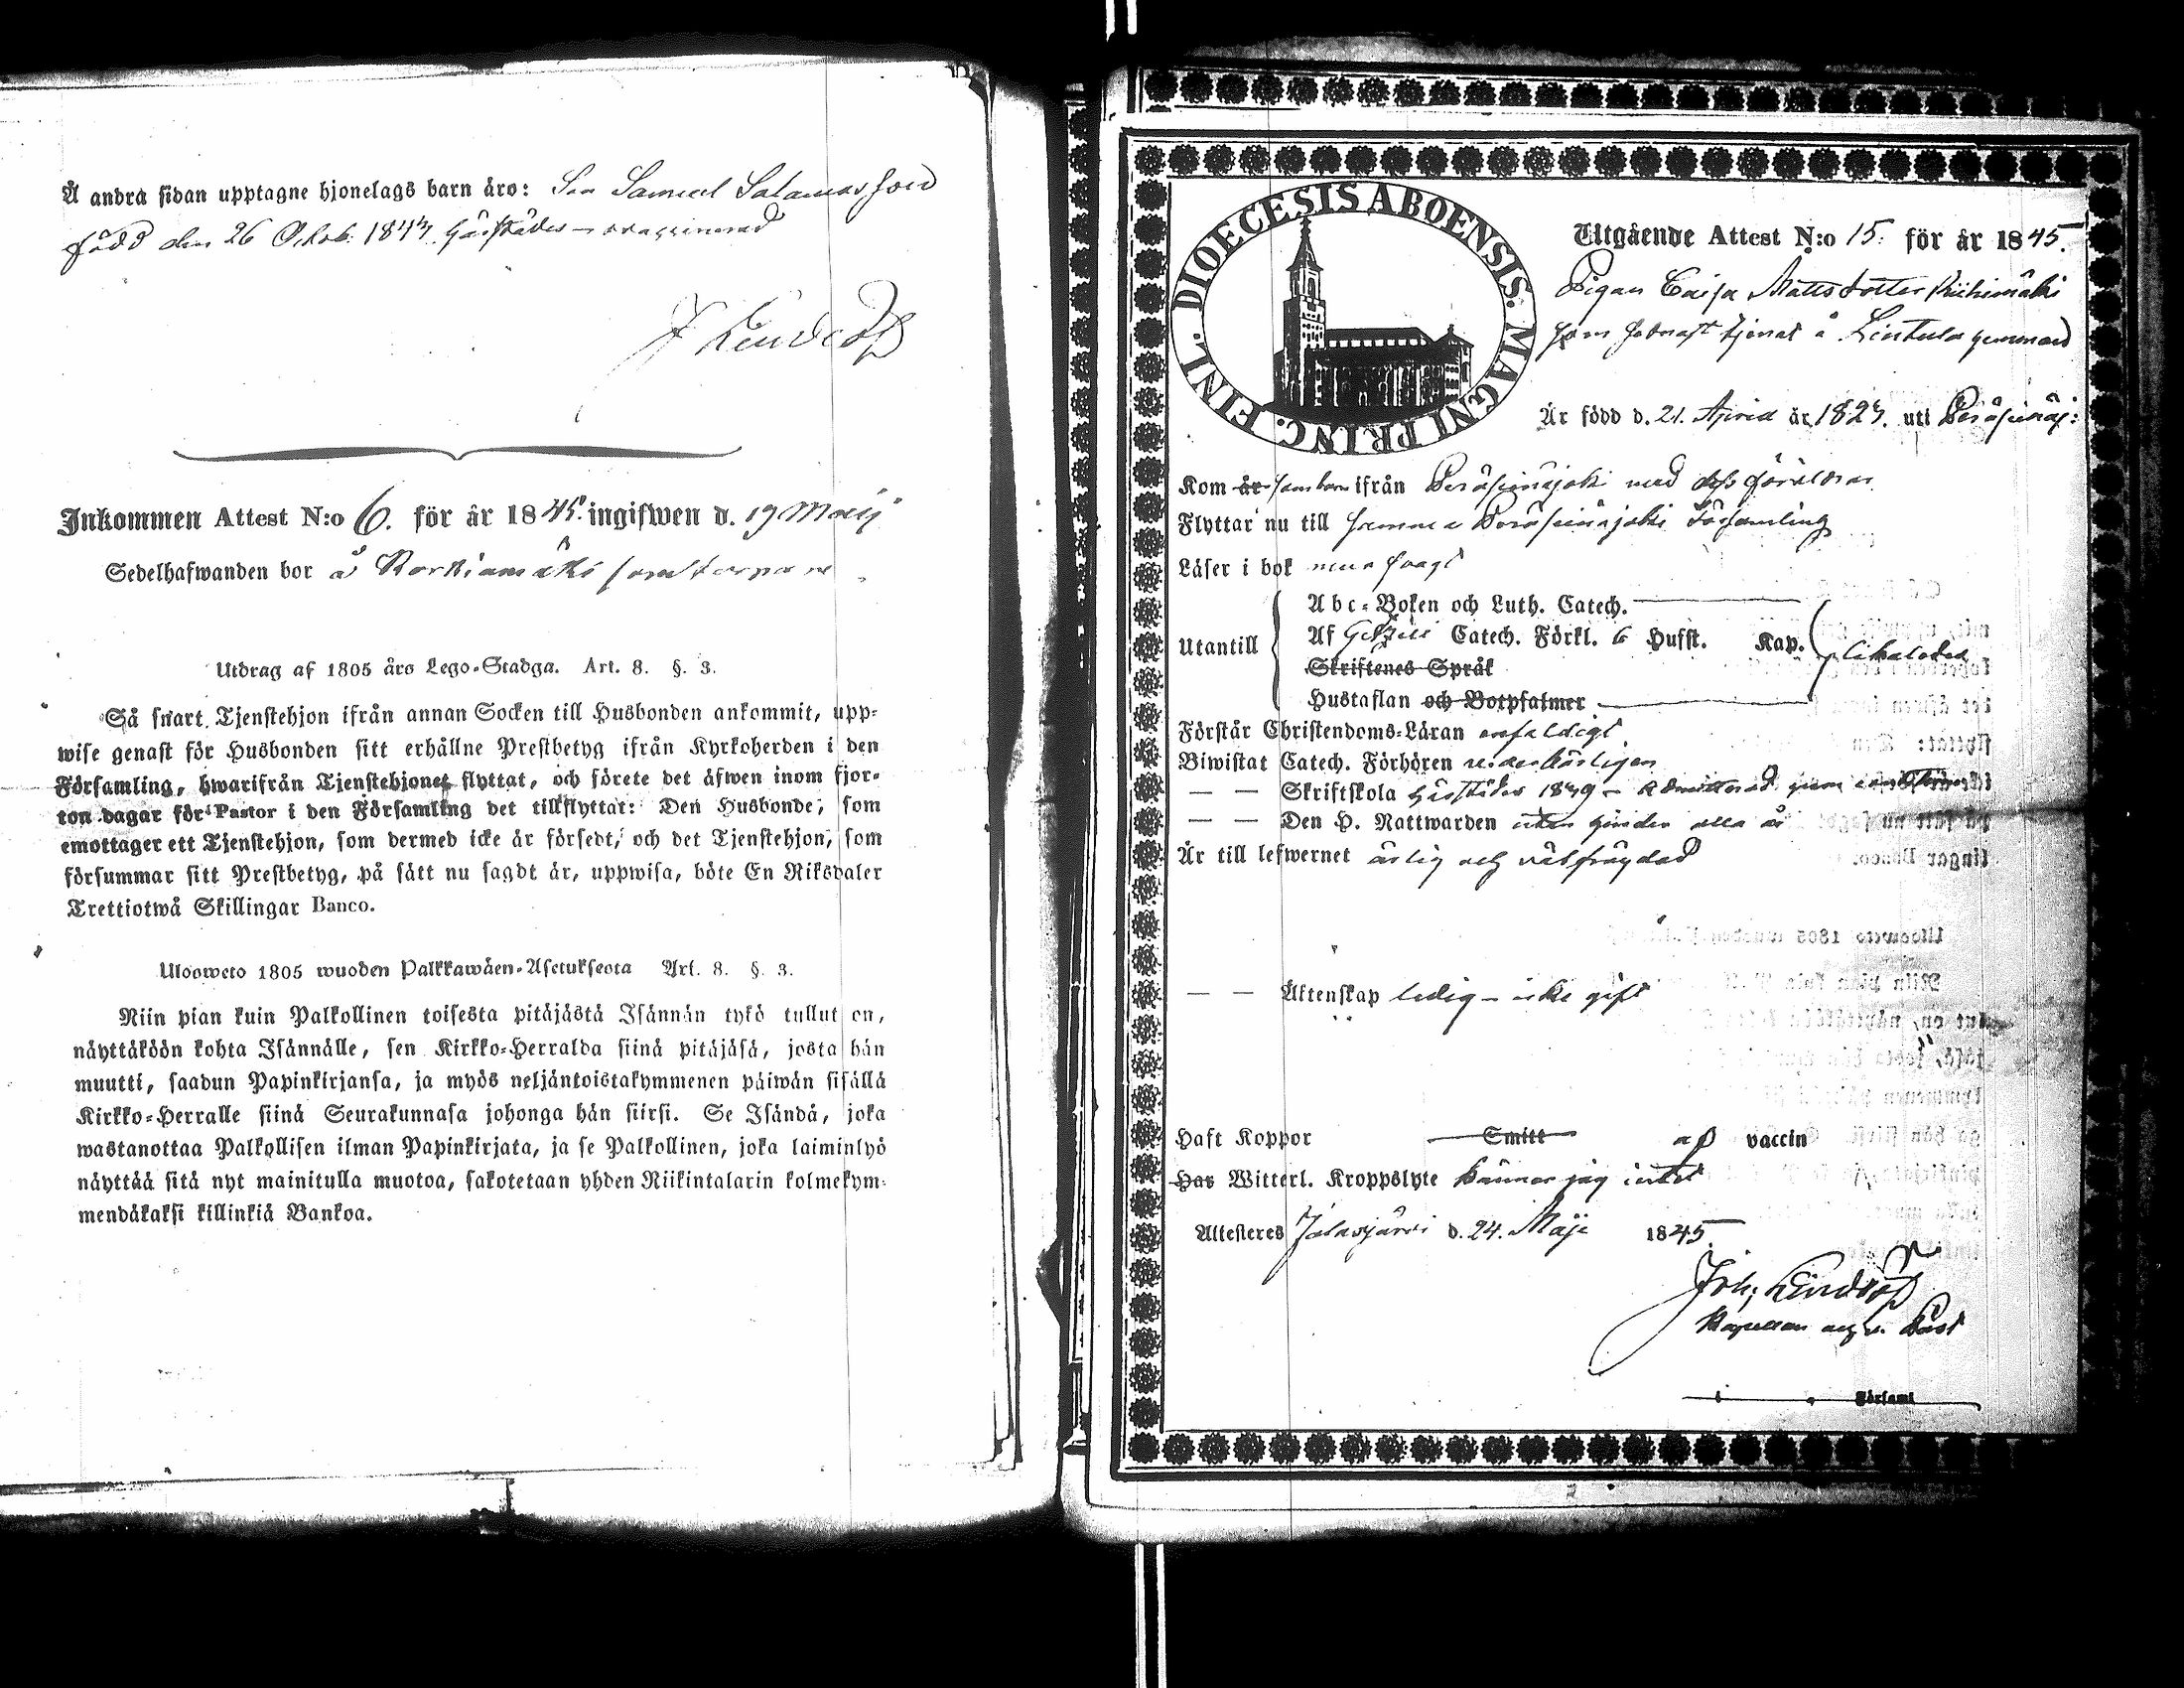 Å andra sidan upptagne hjonelags barn äro: Son Samuel Salomonsson
född den 26 Octob. 1843 härstädes – ovaccinerad
Inkommen Attest N:o 6. för år 1845. ingifwen d. 19 Maij
Sedelhafwanden bor å
Utdrag af 1805 års Lego-Stadga. Art. 8. §. 3.
Så snart Tjenstehjon ifrån annan Socken till Husbonden ankommit, upp-
wise genast för Husbonden sitt erhållne Prestbetyg ifrån Kyrkoherden i den
Församling, hwarifrån Tjenstehjonet flyttat, och förete det äfwen inom fjor-
ton dagar för Pastor i den Församling det tillflyttat: Den Husbonde, som
emottager ett Tjenstehjon, som dermed icke är försedt, och det Tjenstehjon, som
försummar sitt Prestbetyg, på sätt nu sagdt är, uppwisa, böte En Riksdaler
Trettiotwå Skillingar Banco.
Ulosweto 1805 wuoden Palkkawäen-Asetuksesta Art. 8. §. 3.
Niin pian kuin Palkollinen toisesta pitäjästä Isännän tykö tullut on,
näyttäköön kohta Isännälle, sen Kirkko-Herralda siinä pitäjäsä, josta hän
muutti, saadun Papinkirjansa, ja myös neljäntoistakymmenen päiwän sisällä
Kirkko-Herralle siinä Seurakunnasa johonga hän siirsi. Se Isändä, joka
wastanottaa Palkollisen ilman Papinkirjata, ja se Palkollinen, joka laiminlyö
näyttää sitä nyt mainitulla muotoa, sakotetaan yhden Riikintalarin kolmekym-
mendäkaksi killinkiä Bankoa.
DIOECESIS ABOENSIS. MAGNI PRINC. FINL.
Utgående Attest N:o 15. för år 1845.
Pigan Caisa Mattsdotter
som sednast tjenat å Lintula hemman
Är född d. 21. April år 1823. uti Peräseinäj:
Kom är som barn ifrån Peräseinäjoki med dess föräldrar
Flyttar nu till samma Peräseinäjoki församling
Läser i bok svagt
Utantill
Abc-Boken och Luth. Catech.
Af Gezelii Catech. Förkl. 6 Hufst. Kap. likaledes
Skriftenes Språk
Hustaflan och Botpsalmer
Förstår Christendoms-Läran enfaldigt
Biwistat Catech. Förhören
— — Skriftskola härstädes
— — Den H. Nattwarden utan hinder alla år
Är till lefwernet ärlig och välfrägdad
— — Äktenskap ledig – icke gift
Haft Koppor Smitt af vaccin
Har Witterl. Kroppslyte känner jag intet
Attesteres Jalasjärvi d. 24. Maji 1845.
Kapellan
i Församl